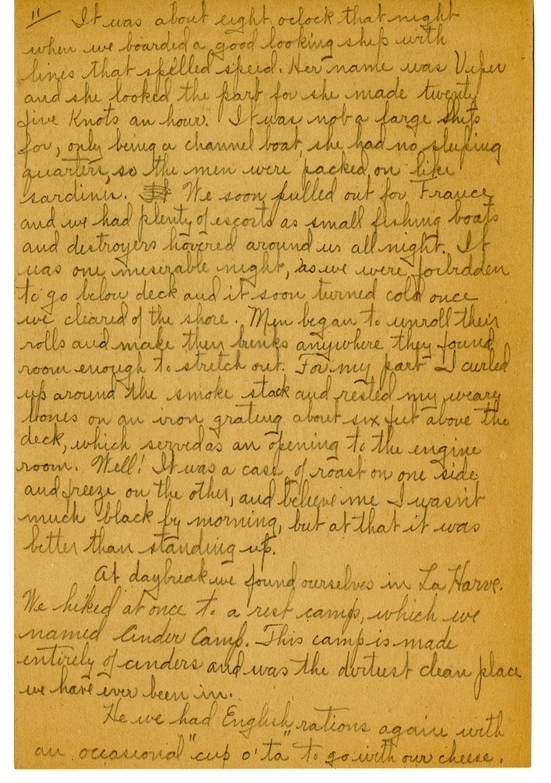 11
It was about eight oclock that night
when we boarded a good looking ship with
lines that spelled speed. Her name was Viper
and she looked the part for she made twenty
five Knots an hour. It was not a large ship
for, only being a channel boat, she had no sleeping
quarters, so the men were packed on like
sardines. We soon pulled out for France
and we had plenty of escorts as small fishing boats
and destroyers hovered around us all night. It
was one miserable night, as we were forbidden
to go below deck and it soon turned cold once
we cleared of the shore. Men began to unroll their
rolls and make their bunks anywhere they found
room enough to stretch out. For my part I curled
up around the smoke stack and rested my weary
bones on an iron grating about six feet above the
deck, which served as an opening to the engine
room. Well! It was a case of roast on one side
and freeze on the other, and believe me I wasn't
much black by morning, but at that it was
better than standing up.
At daybreak we found ourselves in La Harve.
We hiked at once to a rest camp, which we
named Cinder Camp. This camp is made
entirely of cinders and was the dirtiest clean place
we have ever been in.
He we had English rations again with
an occasional "cup o' ta" to go with our cheese.